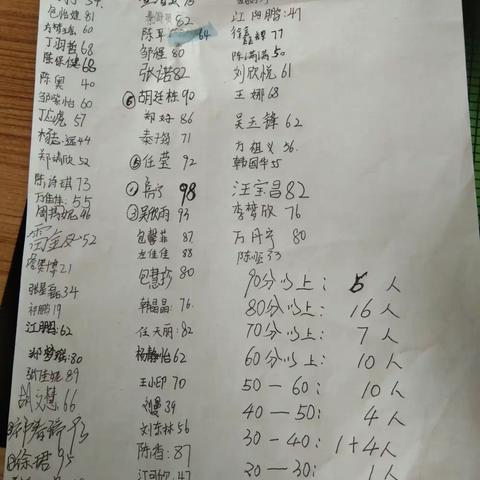 包怡婕 81
方梦瑶 60
丁羽哲 68
陈保健 68
陈奥 40
邹家怡 60
丁应虎 57
杨志远 44
郑靖欣 52
陈诗琪 73
万佳佳: 55
周 妮 86
雷金 52
21
张 34
19
江鹏: 62
郑梦瑶: 80
张佳妮 89
胡文慧 66
93
徐珺 95
82
陈 64
邹程 80
张诺 82
⑥ 胡廷栋 90
郑好 86
秦 71
⑤ 任莹 92
① 98
③ 吴欣雨 93
包馨菲 87
左佳佳 88
包慧 80
韩晶晶: 76.
任天丽: 82
杨静怡 62
王小印 70
刘曼 39
刘东林 56
陈香: 87
江 欣 47
江阳鹏: 47
徐嘉 77
陈满满 50
刘欣悦 61
王娜 68
吴玉锋 62
方祖义 36.
韩国华 55
汪宝昌 82
李梦欣 76
万丹宁 80
陈 33
90分以上: 5 人
80分以上: 16 人
70分以上: 7 人
60分以上: 10 人
50 — 60: 10 人
40 — 50: 4 人
30 - 40: 1+4人
20 — 30: 1人